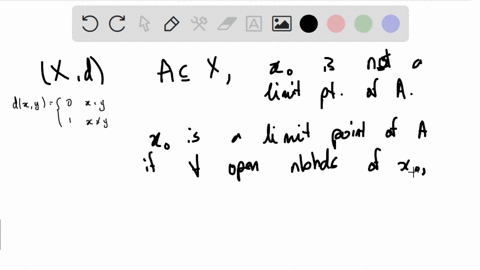 (X,d) A ⊆ X, x₀ is not a
limit pt. of A.
d(x,y) = { 0 x=y
1 x≠y
x₀ is a limit point of A
if ∀ open nbhds of x₀,